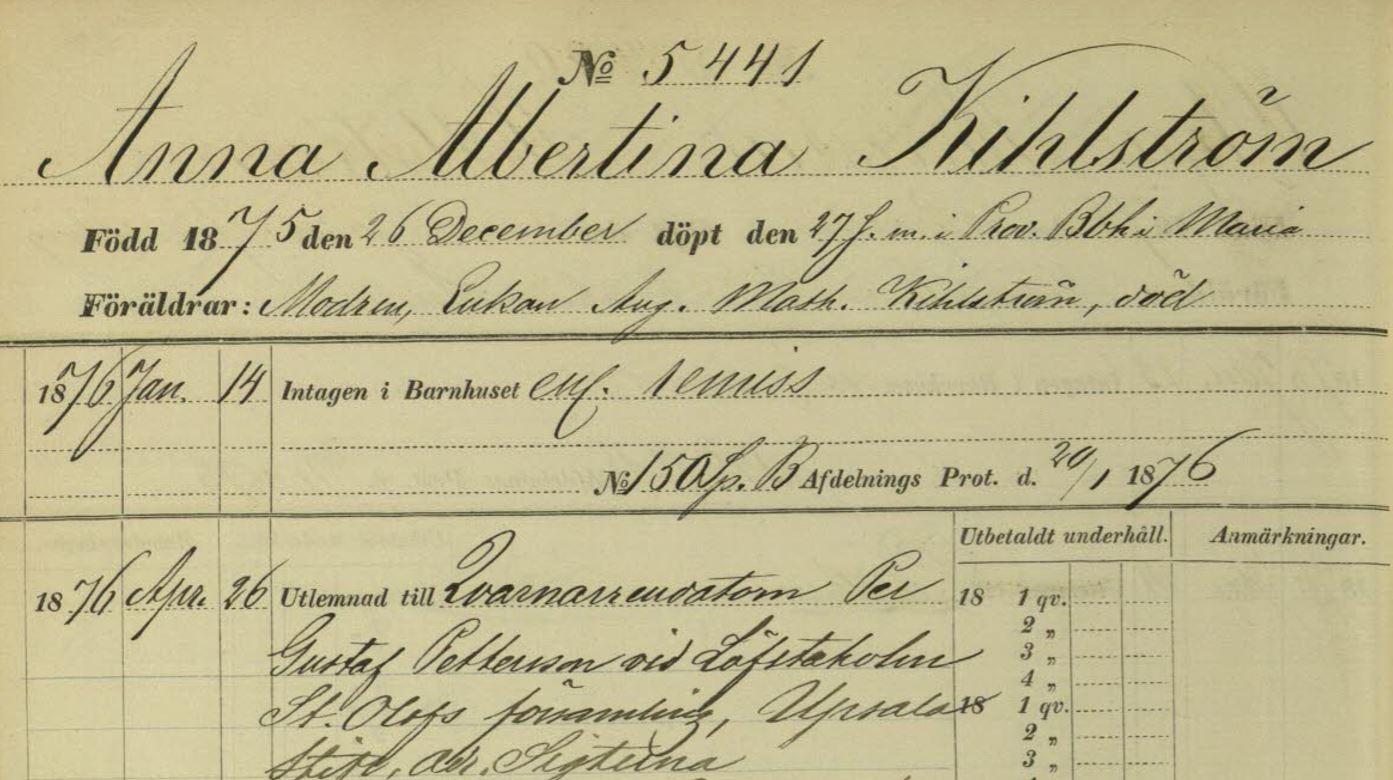 No 5441
Anna Albertina Kihlström
Född 1875 den 26 December döpt den 27 s. m. i Prov. Bbh i Maria
Föräldrar: Modren, Enkan Aug. Math. Kihlström, död
1876 Jan. 14 Intagen i Barnhuset enl. remiss
No 150 Sp. B Afdelnings Prot. d. 20/1 1876
Utbetaldt underhåll. Anmärkningar.
1876 Apr. 26 Utlemnad till Qvarnarrendatorn Per
Gustaf Pettersson vid Löfstaholm
St. Olofs församling, Upsala
Stift, adr. Sigtuna
18 1 qv.
2 „
3 „
4 „
18 1 qv.
2 „
3 „